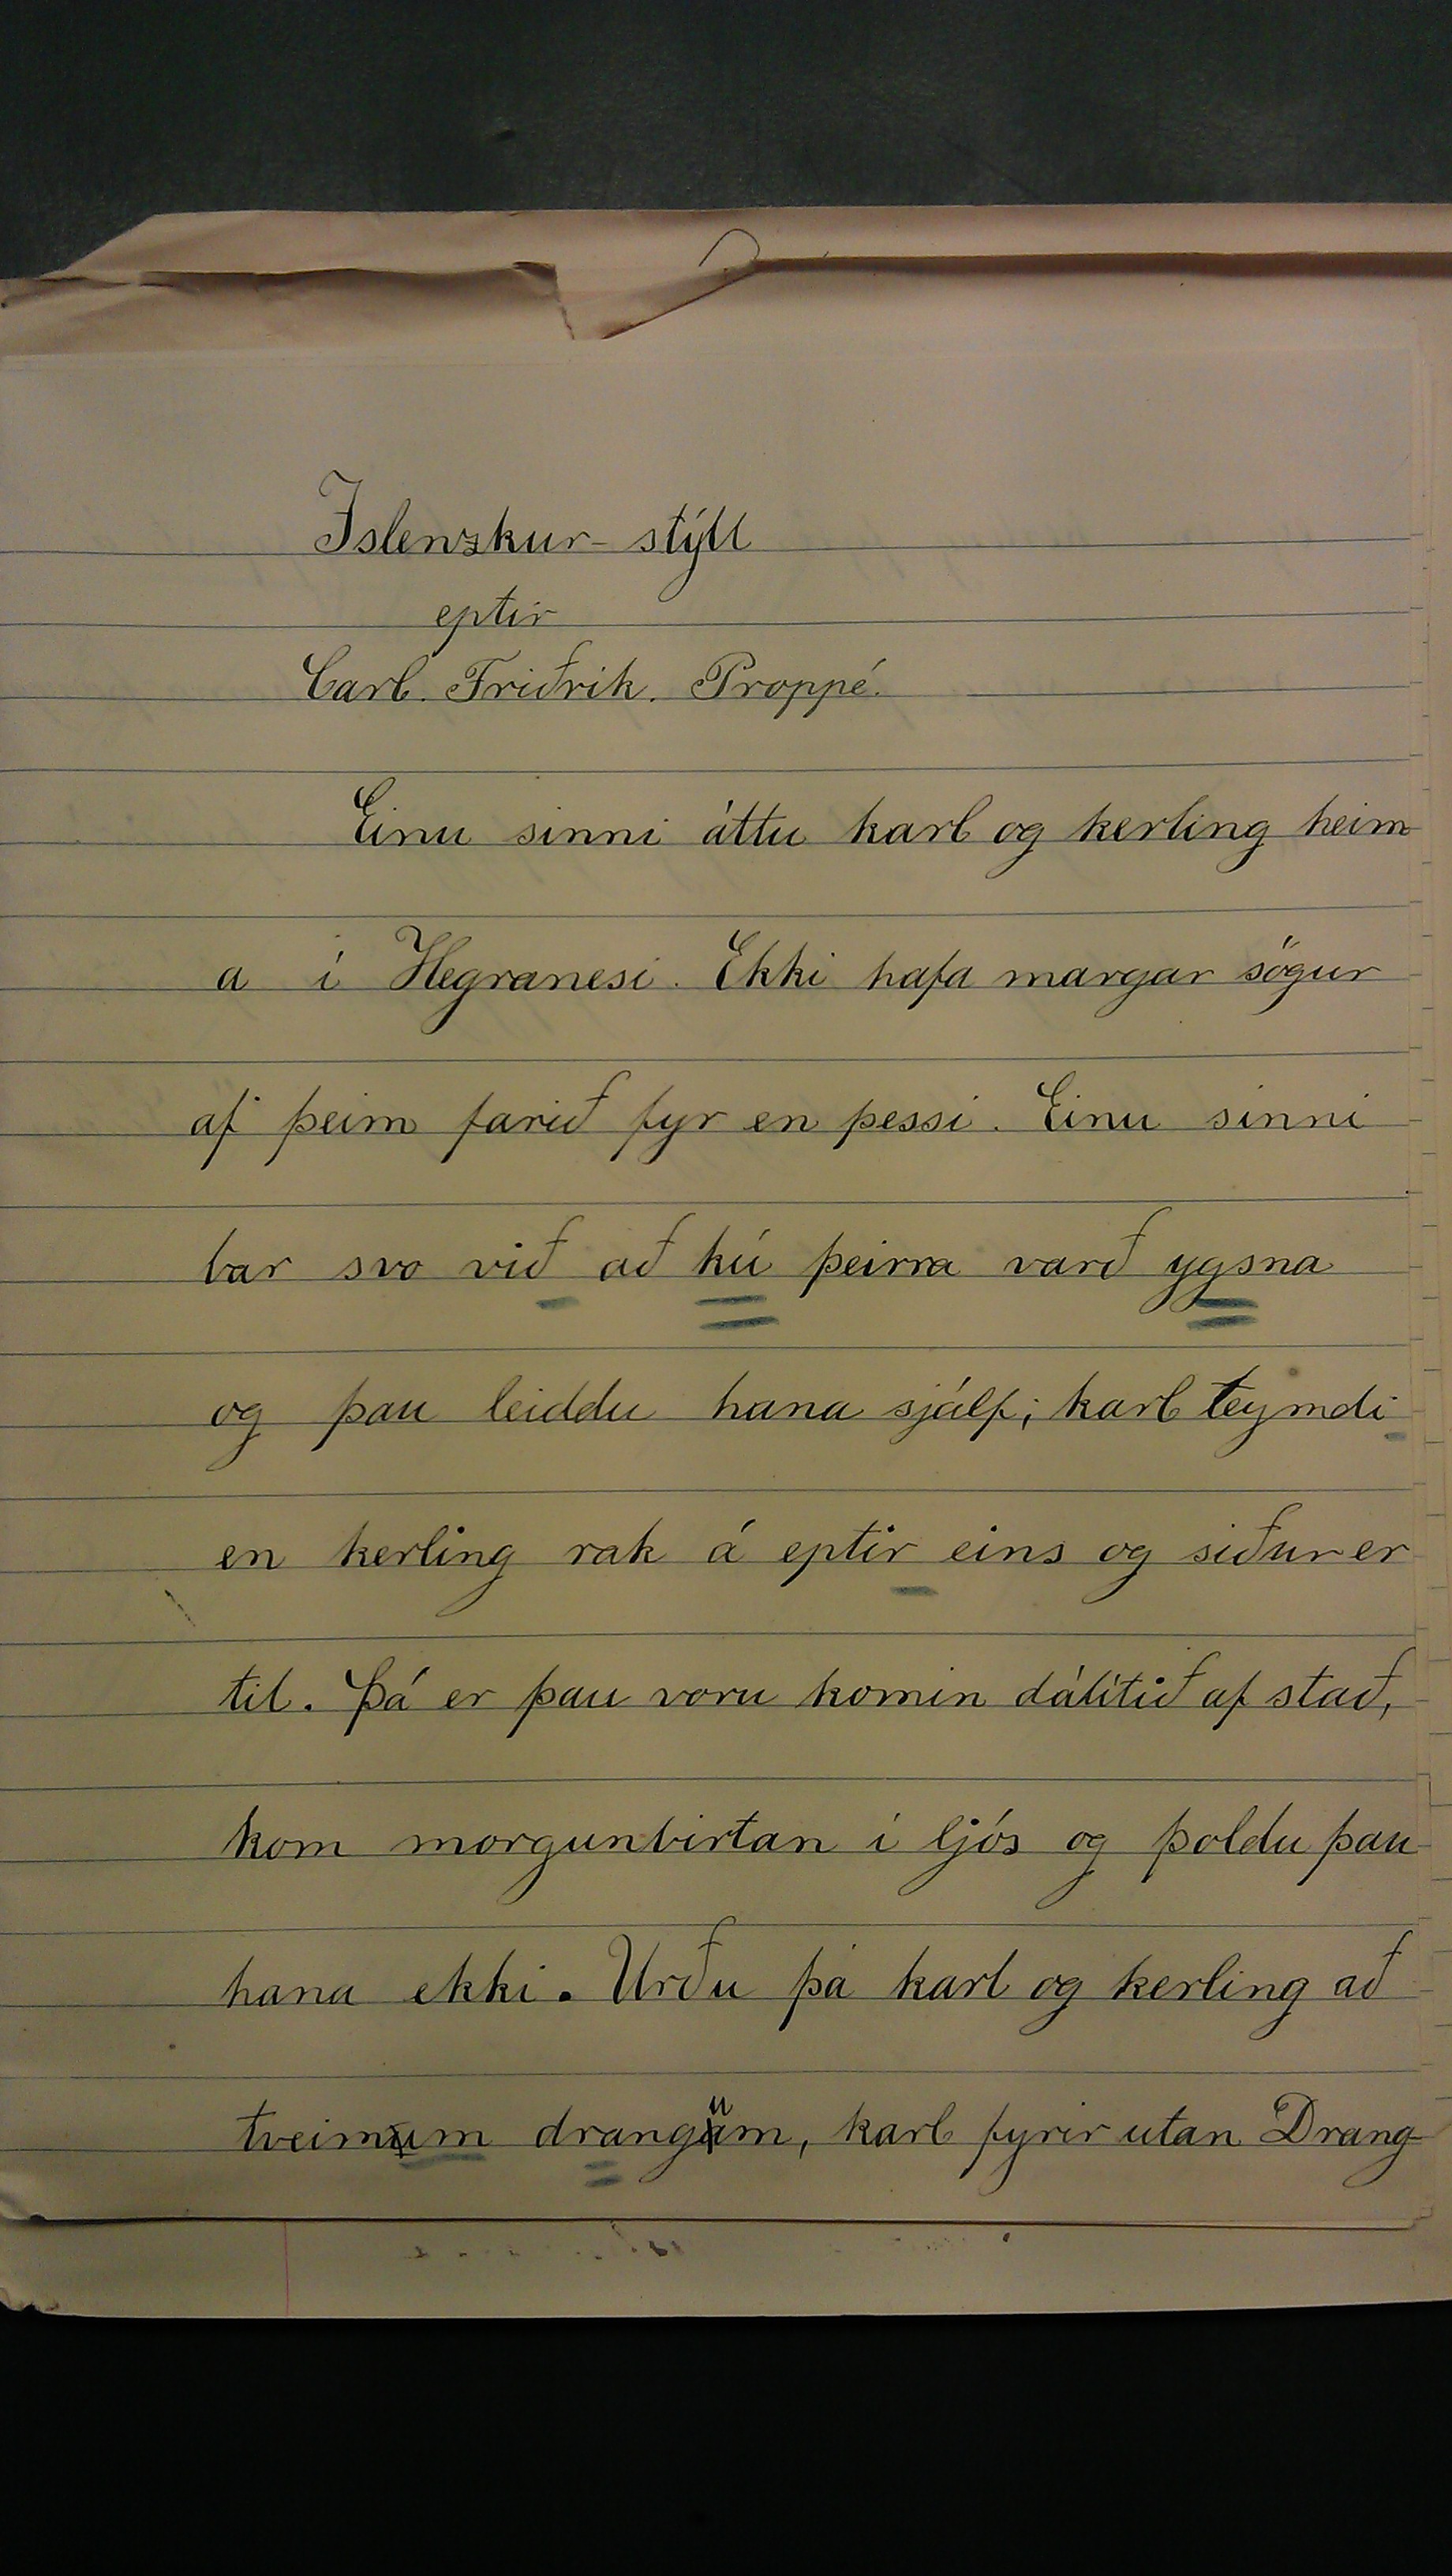 Íslenzkur-stýll
eptir
Carl. Friðrik. Proppé.
Einu sinni áttu karl og kerling heim
a í Hegranesi. Ekki hafa margar sögur
af þeim farið fyr en þessi. Einu sinni
bar svo við að kú þeirra varð ygsna
og þau leiddu hana sjálf; karl teymdi
en kerling rak á eptir eins og siður er
til. Þá er þau voru komin dálítið af stað,
kom morgunbirtan í ljós og þoldu þau
hana ekki. Urðu þá karl og kerling að
tveimum drangum, karl fyrir utan Drang-